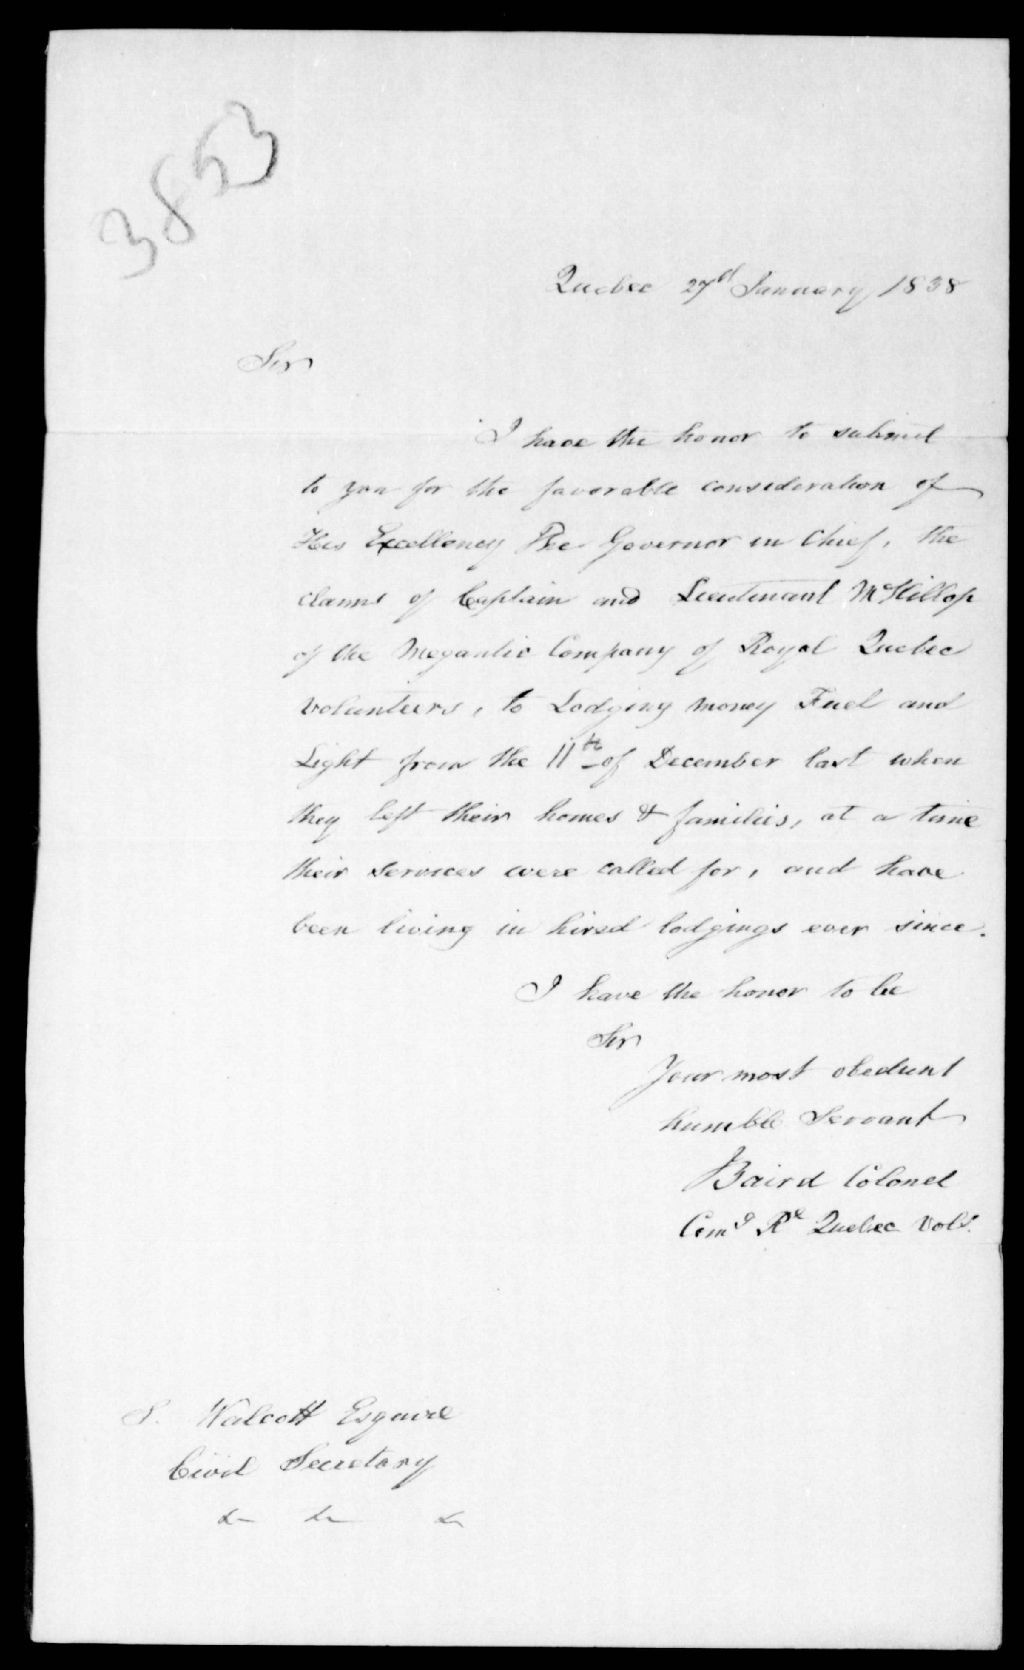 3853
Quebec 27th January 1838
Sir
I have the honor to submit
to you for the favorable consideration of
His Excellency The Governor in Chief, the
claims of Captain and Lieutenant McKillop
of the Megantic Company of Royal Quebec
Volunteers, to Lodging money Fuel and
Light from the 11th of December last when
they left their homes & families, at a time
their services were called for, and have
been living in hired lodgings ever since.
I have the honor to be
Sir
Your most obedient
humble Servant
J Baird Colonel
Comg Rl Quebec Vols.
S. Walcott Esquire
Civil Secretary
&c &c &c